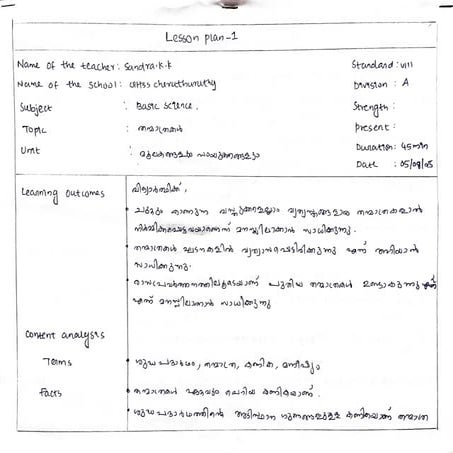 Lesson plan-1
Name of the teacher: Sandra.K.K
Standard: VIII
Name of the school: GHSS cheruthuruthy
Division: A
Subject : Basic Science.
Strength:
Topic : തന്മാത്രകൾ
Present:
Unit : മൂലകങ്ങളും സംയുക്തങ്ങളും
Duration: 45min
Date : 05/08/25
Learning outcomes
വിദ്യാർത്ഥിക്ക്,
• ചുറ്റും കാണുന്ന വസ്തുക്കളെല്ലാം വ്യത്യസ്തങ്ങളായ തന്മാത്രകളാൽ
നിർമ്മിക്കപ്പെട്ടവയാണെന്ന് മനസ്സിലാക്കാൻ സാധിക്കുന്നു.
• തന്മാത്രകൾ ഘടനകളിൽ വ്യത്യാസപ്പെട്ടിരിക്കുന്നു എന്ന് അറിയാൻ
സാധിക്കുന്നു.
• രാസപ്രവർത്തനത്തിലൂടെയാണ് പുതിയ തന്മാത്രകൾ ഉണ്ടാകുന്നത്
എന്ന് മനസ്സിലാക്കാൻ സാധിക്കുന്നു
Content analysis
Terms
• ശുദ്ധ പദാർത്ഥം, തന്മാത്ര, കണിക,
Facts
• തന്മാത്രകൾ ഏറ്റവും ചെറിയ കണികയാണ്.
• ശുദ്ധപദാർത്ഥത്തിന്റെ അടിസ്ഥാന ഗുണങ്ങളുള്ള കണികയാണ് തന്മാത്ര